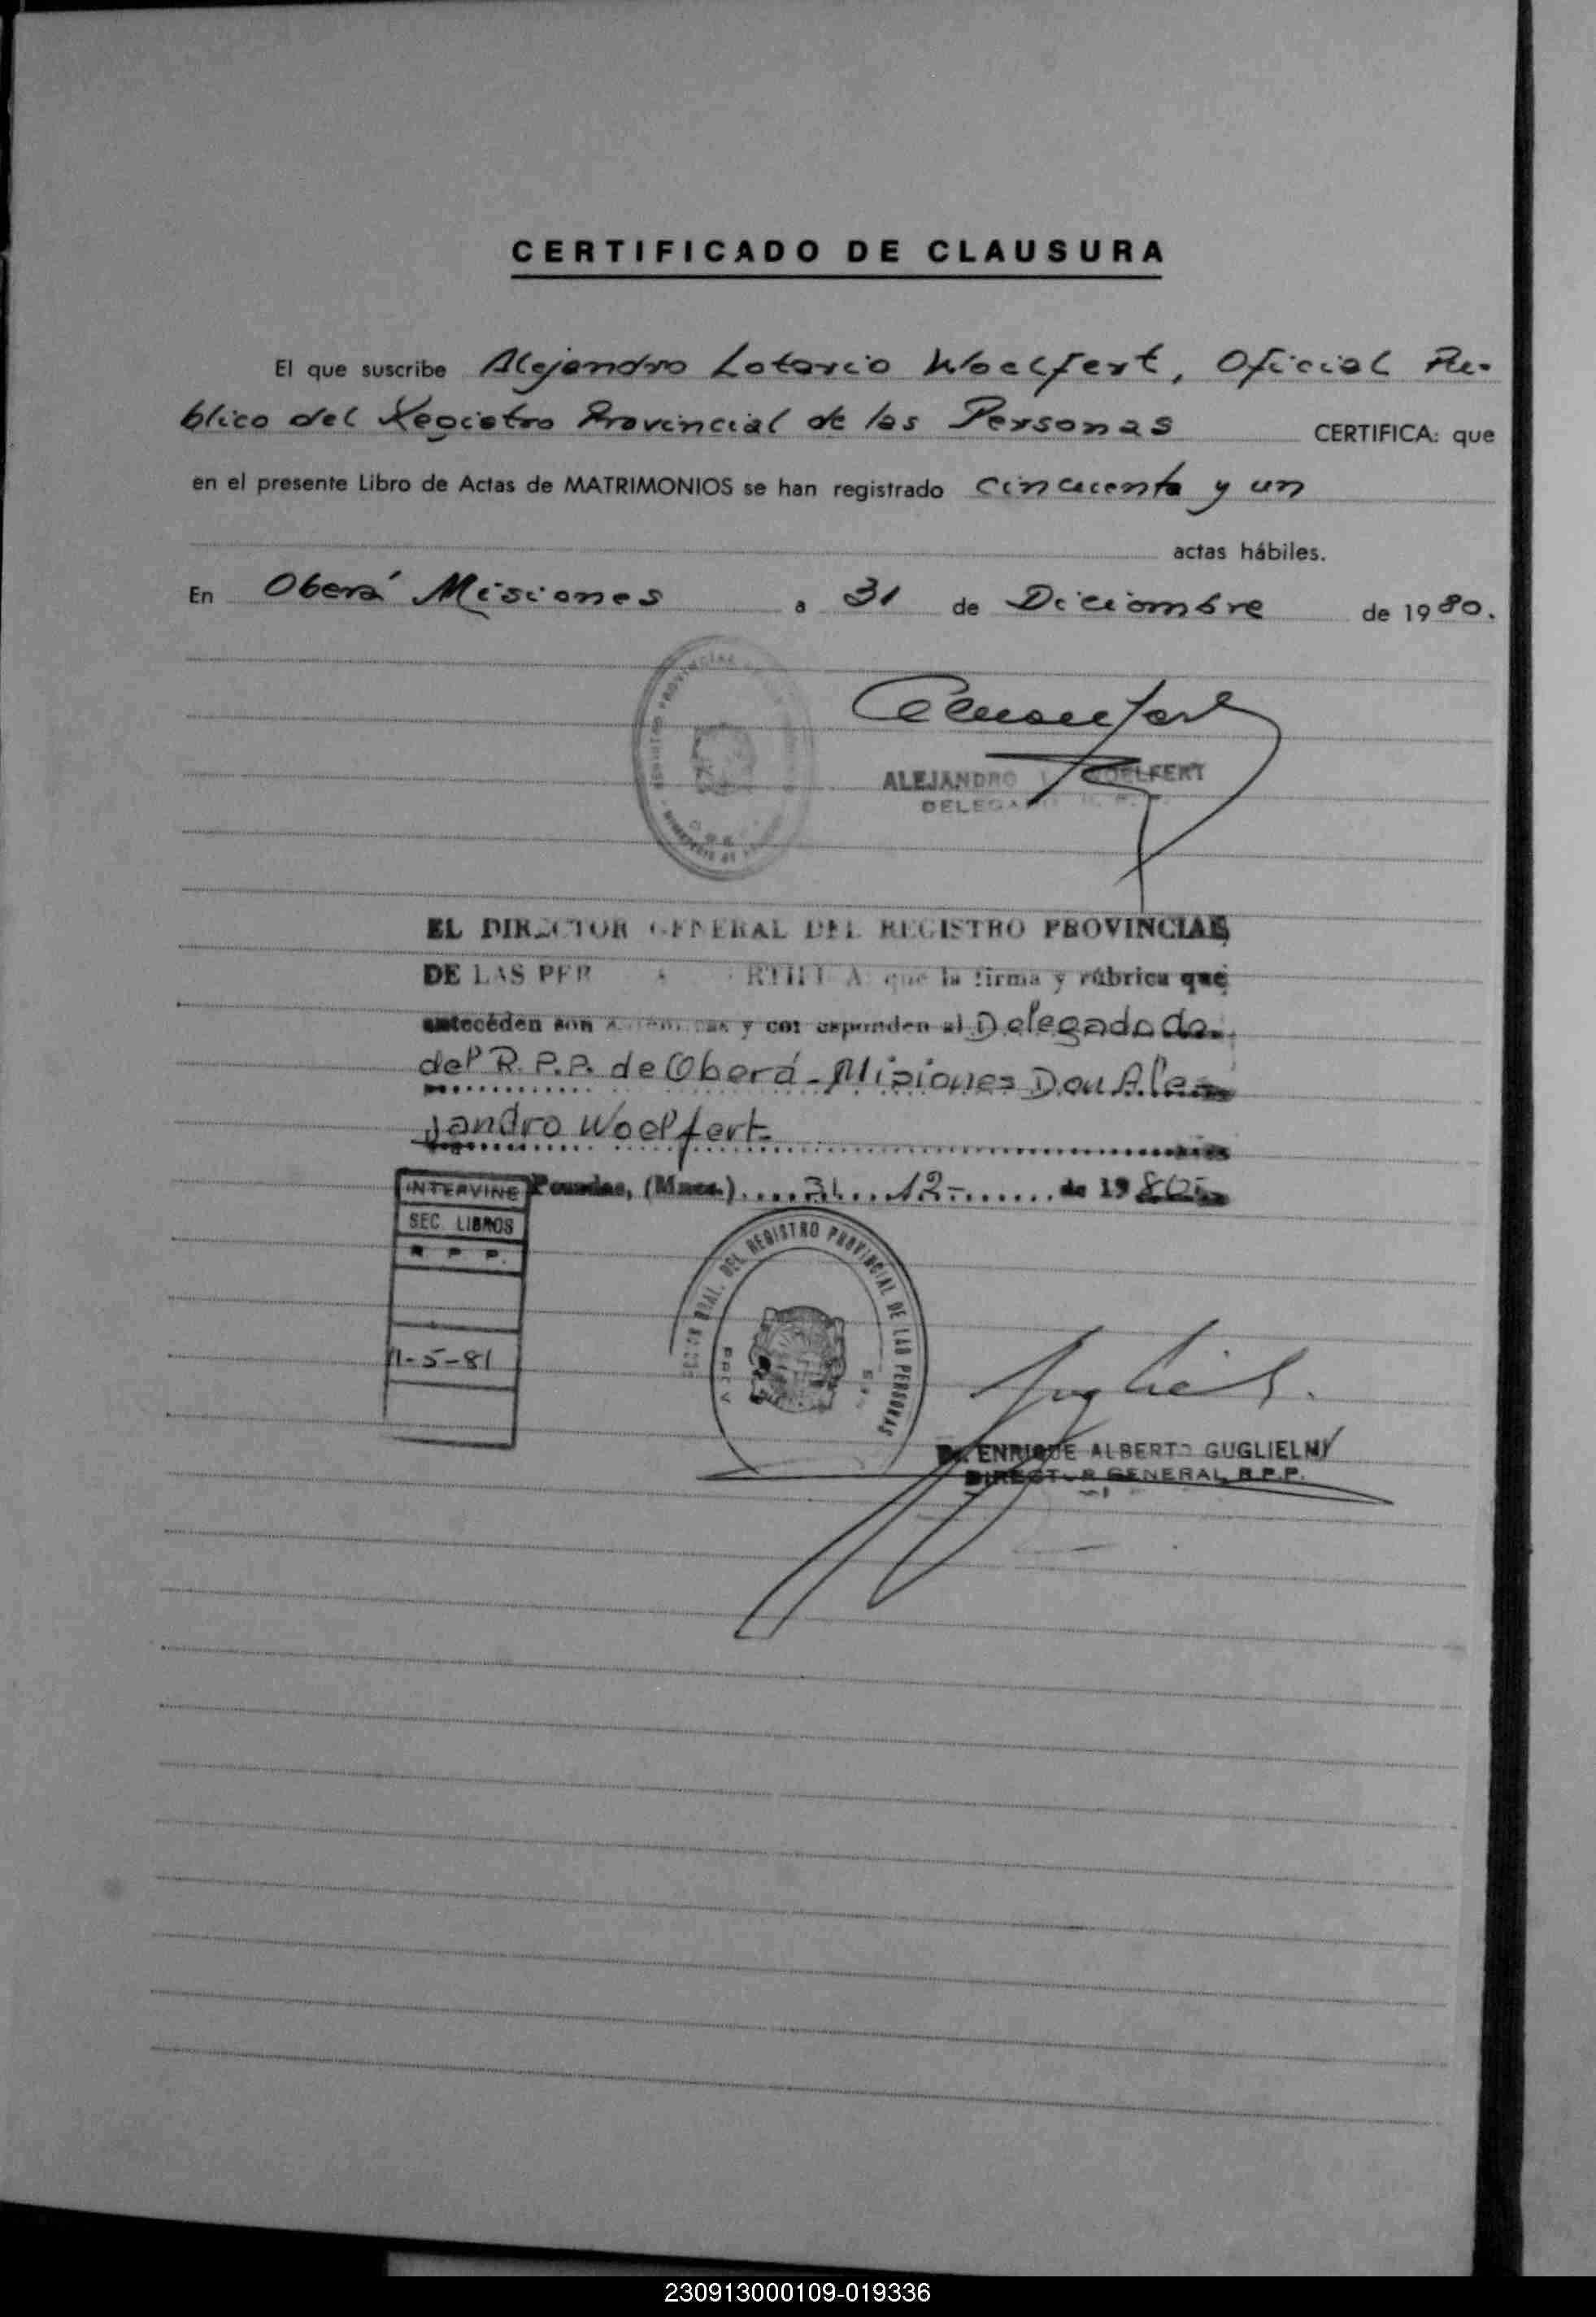 CERTIFICADO DE CLAUSURA
El que suscribe Alejandro Lotario Woelfert, Oficial Pu-
blico del Registro Provincial de las Personas CERTIFICA: que
en el presente Libro de Actas de MATRIMONIOS se han registrado cincuenta y un
actas hábiles.
En Oberá Misiones a 31 de Diciembre de 1980.
ALEJANDRO L. WOELFERT
DELEGADO
EL DIRECTOR GENERAL DEL REGISTRO PROVINCIAL
DE LAS PER que la firma y rúbrica que
anteceden son y corresponden al Delegado do.
del R.P.P. de Oberá-Misiones Don Ale=
jandro Woelfert.
INTERVINE Posadas, (Mnes.) 31 12- de 1980
SEC. LIBROS
R P P.
11-5-81
DEL REGISTRO PROVINCIAL DE LAS PERSONAS
Dr. ENRIQUE ALBERTO GUGLIELMI
DIRECTOR GENERAL R.P.P.
230913000109-019336